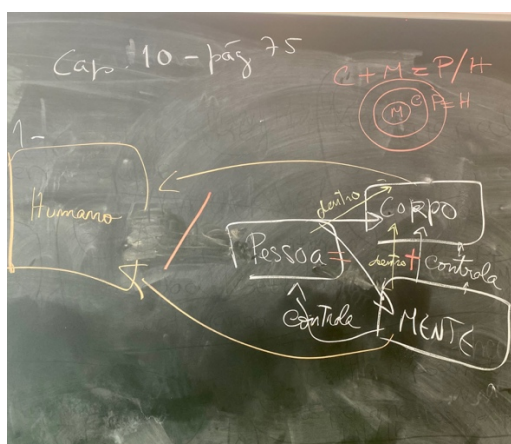 Cap. 10 - pág 75
C + M = P/H
M C P=H
1-
Humano
dentro
CORPO
Pessoa =
dentro + controla
controla
MENTE